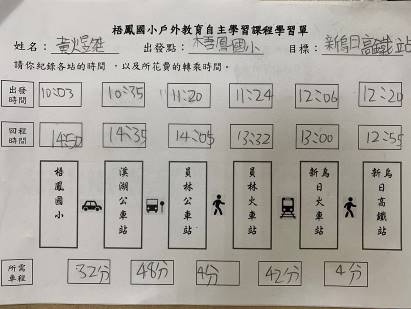 梧鳳國小戶外教育自主學習課程學習單
姓名： 黃煜 出發點： 梧鳳國小 目標： 新烏日高鐵站
請你紀錄各站的時間，以及所花費的轉乘時間。
出發時間 10:03 10:35 11:20 11:24 12:06 12:20
回程時間 14:50 14:35 14:05 13:32 13:00 12:55
梧鳳國小 溪湖公車站 員林公車站 員林火車站 新烏日火車站 新烏日高鐵站
所需車程 32分 48分 4分 42分 4分